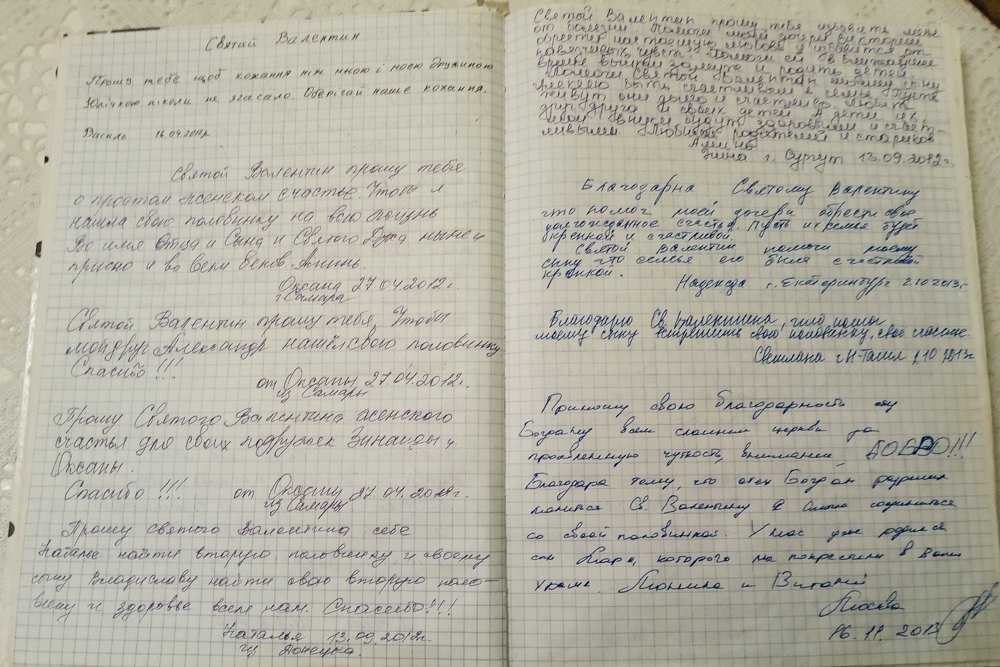 Святий Валентин
Прошу тебе щоб кохання між мною і моєю дружиною
Юлічкою ніколи не згасало. Оберігай наше кохання.
Василь 16.04.2012
Святой Валентин прошу тебя
о простом женском счастье. Чтобы я
нашла свою половинку на всю жизнь
Во имя Отца и Сына и Святого Духа ныне и
присно и во веки веков. Аминь.
Оксана 27.04.2012г.
г. Самара
Святой Валентин прошу тебя, чтобы
мой друг Александр нашёл свою половинку
Спасибо!!!
от Оксаны 27.04.2012г.
из Самары
Прошу Святого Валентина женского
счастья для своих подружек Зинаиды и
Оксаны.
Спасибо!!! от Оксаны 27.04.2012г.
из Самары
Прошу святого Валентина себе
Наталье найти вторую половинку и своему
сыну Владиславу найти свою вторую поло-
винку и здоровье всем нам. Спасибо!!!
Наталья 13.09.2012г.
из Донецка.
Святой Валентин прошу тебя
от болезни Помоги моей дочери Виктории
обрести настоящую любовь и
Помоги ей в
время выйти замуж и родить детей
Помоги Святой Валентин моему сыну
быть счастливым в семье Пусть
живут они долго и счастливо, любят
друг друга и своих детей А дети их
мои внуки будут здоровыми и счаст-
ливыми Любящие родителей и стариков
Аминь
г. Сургут 13.09.2012г.
Благодарна Святому Валентину
что помог моей дочери обрести свое
долгожданное счастье. Пусть их семья будет
крепкой и счастливой.
Святой Валентин помоги моему
сыну что семья его была счастливой
крепкой.
Надежда г. Екатеринбург 2.10.2013г
Благодарю Св. Валентина, что помог
моему сыну встретить свою половинку, свое счастье.
Светлана г. Н-Тагил 2.10.2013г
Приношу свою благодарность
Богдану всем служителям церкви за
проявленную чуткость, внимание, ДОБРО!!!
Благодаря тому, что отец Богдан разрешил
молиться Св. Валентину я смогла соединиться
со своей половинкой. У нас уже родился
сын Марк, которого мы покрестили в
храме. и Виталий
Москва
16.11.2013